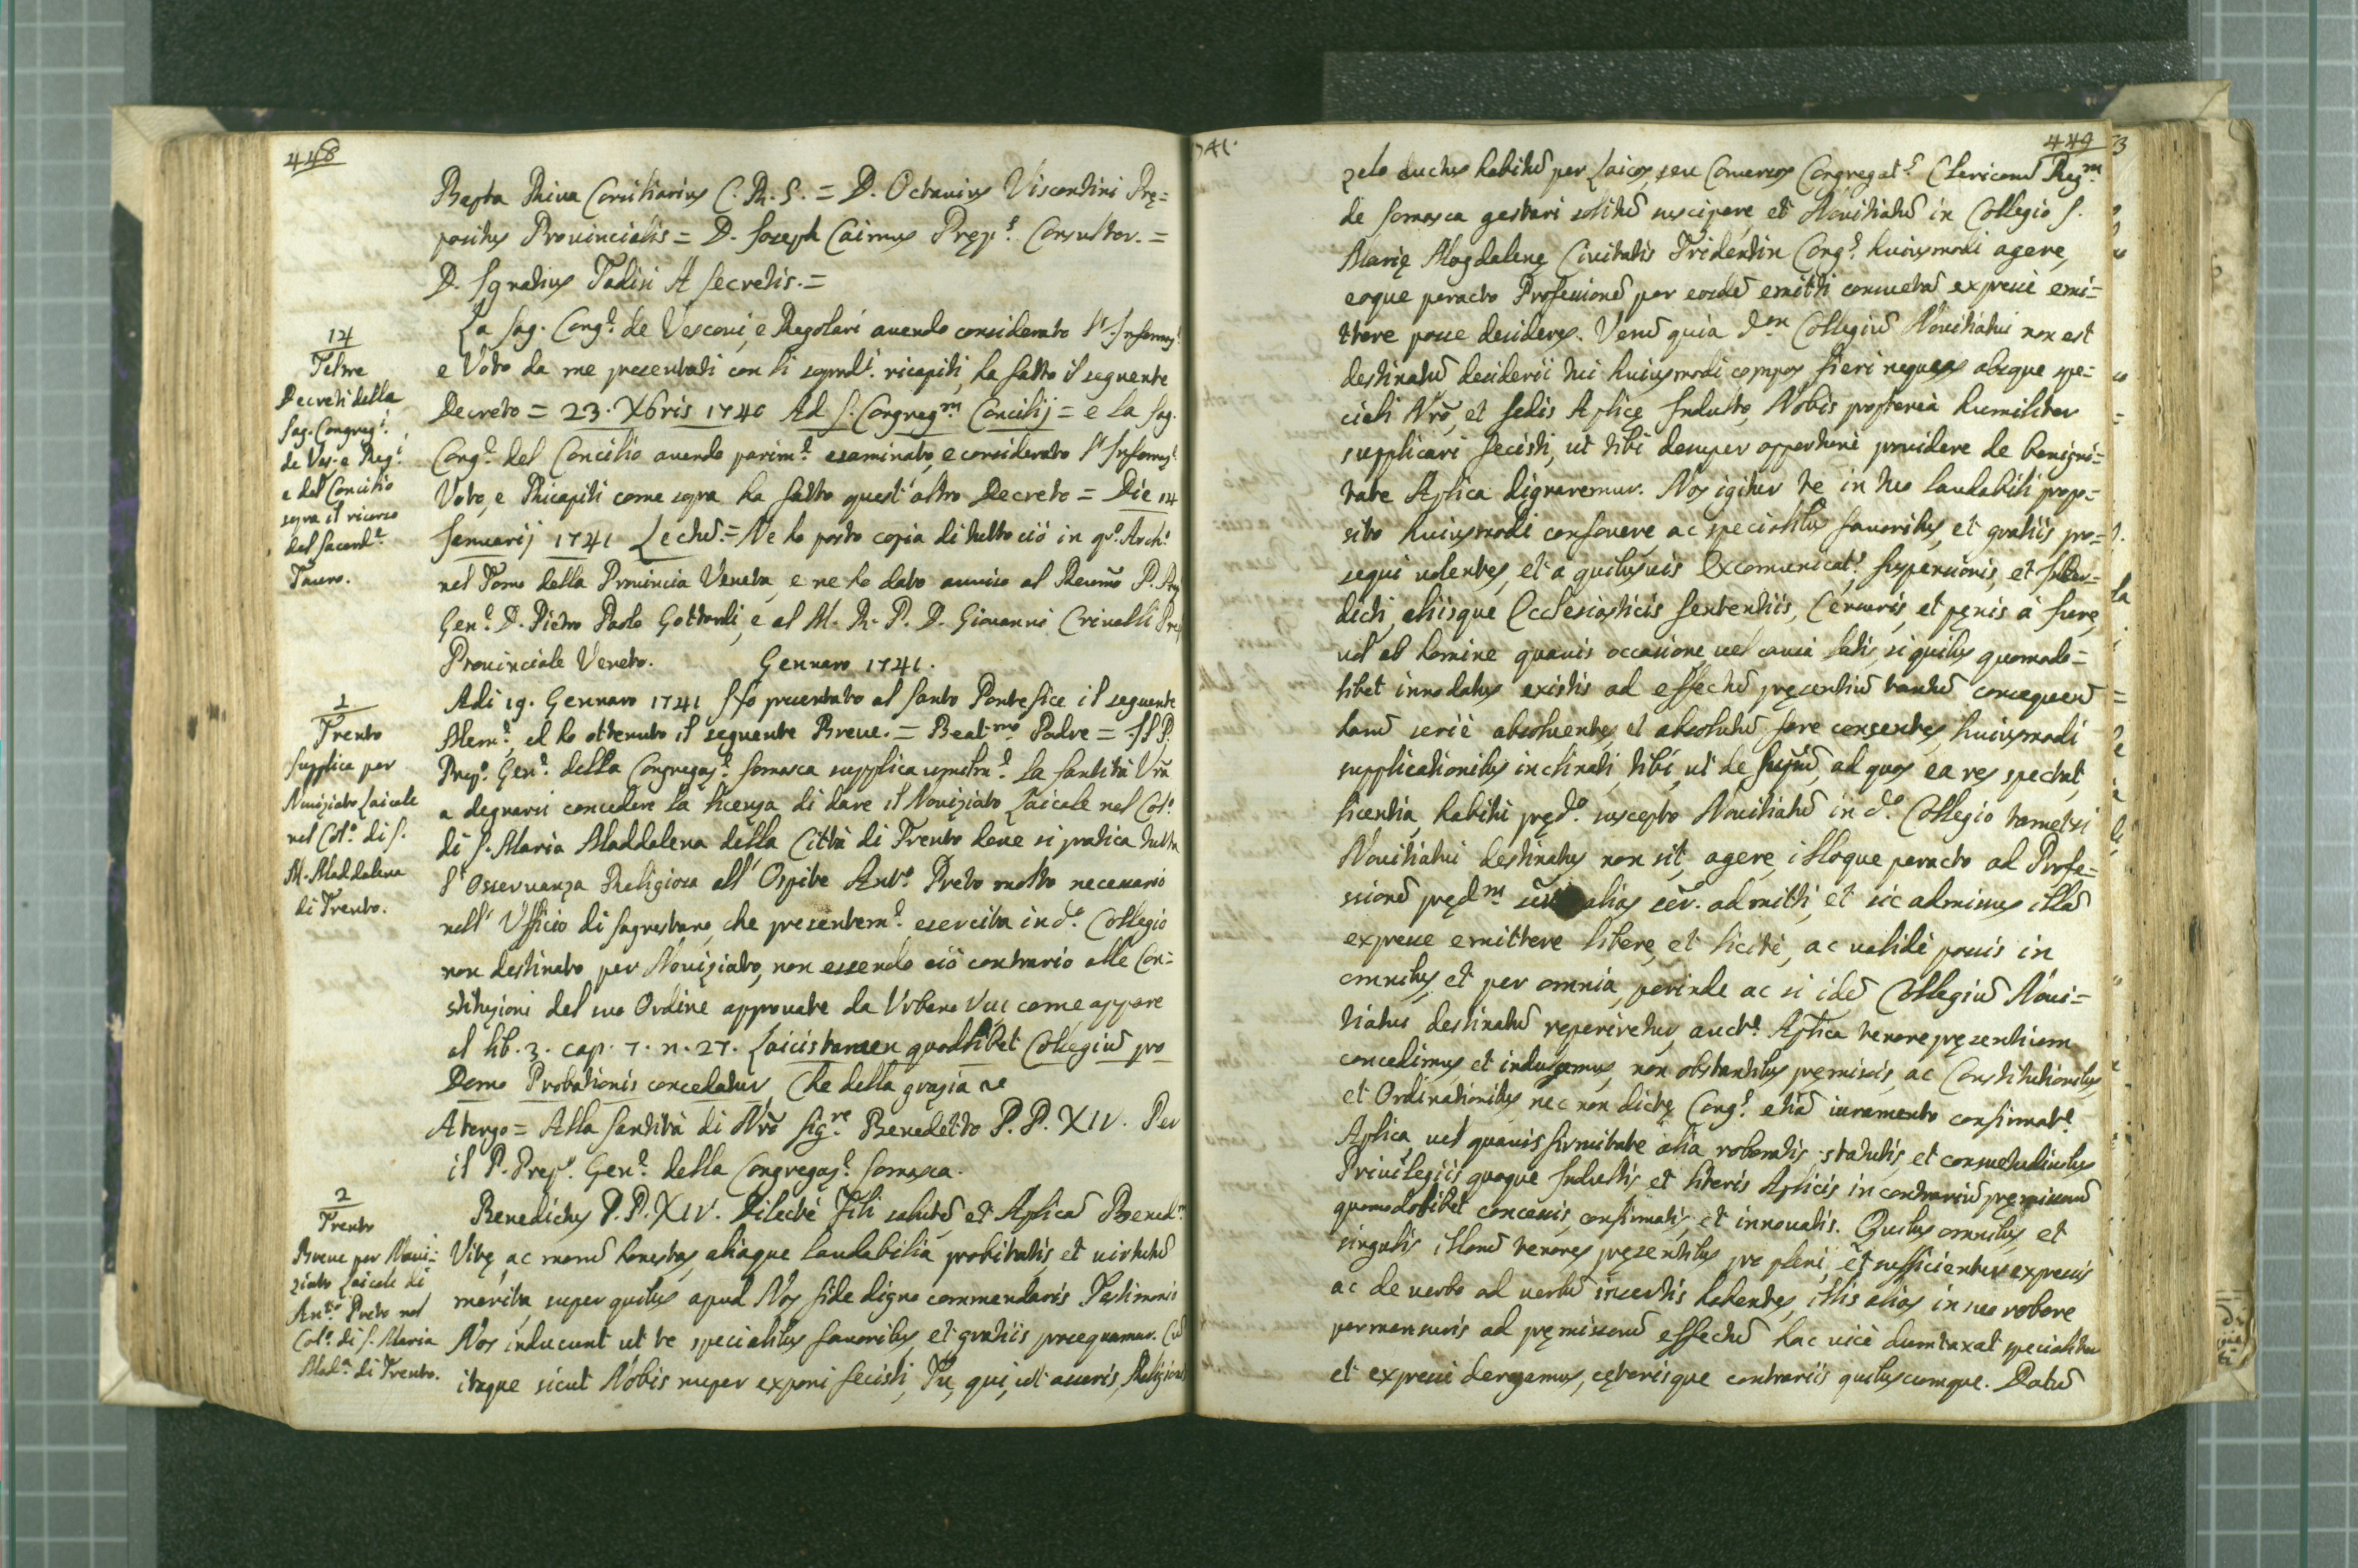 448
Bapta Riva Consiliarius C. R. S. = D. Octavius Vicecomini Prę=
positus Provincialis = D. Joseph Caimus Prępᵗ. Consultor. =
D. Ignatius Tadisi A Secretis. =
14
Feltre
Decreti della
Sag. Congregᵉ.
de Ves. e Regⁱ.
e del Concilio
sopra il ricorso
del Sacerdᵉ.
Tauro.
La Sag. Congᵉ. de Vescovi, e Regolari avendo considerato l'Informᵉ.
e Voto da me presentati con li sopradⁱ. ricapiti, ha fatto il seguente
Decreto = 23. Xbris 1740 Ad S. Congregᵐ Concilij = e la Sag.
Congᵉ. del Concilio avendo parimᵉ. esaminato, e considerato l'Informᵉ.
Voto, e Ricapiti come sopra ha fatto quest'altro Decreto = Die 14
Januarij 1741 Lectũ. = Ne ho posto copia di tutto ciò in qᵒ. Archᵒ.
nel Tomo della Provincia Veneta, e ne ho dato avviso al Reṽmo P. Prep
Genᵉ. D. Pietro Paolo Gottardi, e al M. R. P. D. Giovanni Crivelli Prep
Provinciale Veneto. Gennaro 1741.
1
Trento
Supplica per
Noviziato Laicale
nel Colᵒ. di S.
M. Maddalena
di Trento.
Adi 19. Gennaro 1741 Ho presentato al Santo Pontefice il seguente
Memᵉ. ed ho ottenuto il seguente Breve. = Beatᵐᵒ Padre = Il P.
Prepᵒ. Genᵉ. della Congregazᵉ. Somasca supplica umilmᵉ. la Santità Vrã
a degnarsi concedere la licenza di dare il Noviziato Laicale nel Colᵒ.
di S. Maria Maddalena della Città di Trento dove si pratica tutta
l'Osservanza Religiosa all'Ospite Antᵒ. Preto molto necessario
nell'Ufficio di Sagrestano, che presentemᵉ. esercita in dᵒ. Collegio
non destinato per Noviziato, non essendo ciò contrario alle Con=
stituzioni del suo Ordine approvate da Urbano VIII come appare
al lib. 3. cap. 7. n. 27. Laicis tamen quodlibet Collegiũ pro
Domo Probationis concedatur, Che della grazia ne
A tergo = Alla Santità di Nrõ Sigʳᵉ. Benedetto P. P. XIV. Per
il P. Prepᵒ. Genᵉ. della Congregazᵉ. Somasca.
2
Trento
Breve per Novi=
ziato Laicale di
Antᵒ Preto nel
Colᵒ. di S. Maria
Madᵃ. di Trento.
Benedictus P. P. XIV. Dilecte Fili salutẽ et Aplicã Benedᵐ.
Vitę, ac morũ honestas, aliaque laudabilia probitatis, et virtutũ
merita, super quibus apud Nos fide digno commendaris Testimonio
Nos inducunt ut te specialibus favoribus, et gratiis prosequamur. Cũ
itaque sicut Nobis nuper exponi fecisti, Tu, qui, ut asseris, Religionis
741.
449
zelo ductus habitũ per Laicos, seu Conversos Congregatᵉ. Clericorũ Regᵐ
de Somasca gestari solitũ suscipere, et Novitiatũ in Collegio S.
Marię Magdalenę Civitatis Tridentin Congᵉ. huiusmodi agere,
eoque peracto Professionẽ per eosdẽ emitti consuetã expresse emi=
ttere posse desideres. Verũ quia dᵐ Collegiũ Novitiatui non est
destinatũ desiderii tui huiusmodi compos fieri nequeas absque spe=
ciali Nrõ, et Sedis Aplicę Indulto, Nobis propterea humiliter
supplicari fecisti, ut tibi desuper opportune providere de benigni=
tate Aplica dignaremur. Nos igitur te in tuo laudabili propo=
sito huiusmodi confovere, ac specialibus favoribus, et gratiis pro=
sequi volentes, et a quibusvis Excomunicatᵉ. suspensionis, et Inter=
dicti, aliisque Ecclesiasticis sententiis, Censuris, et pęnis à Jure,
vel ab homine quavis occasione, vel causa latis, si quibus quomodo=
libet innodatus existis ad effectũ pręsentiũ tantũ consequend
harũ serie absolventes, et absolutũ fore censentes, huiusmodi
supplicationibus inclinati, tibi, ut de Supũ, ad quos ea res spectat,
licentia, habitu prędᵒ. suscepto Novitiatũ in dᵒ. Collegio tametsi
Novitiatui destinatus non sit, agere, illoque peracto ad Profes=
sionẽ prędᵐ alias sẽr. admitti, et sic admissus illã
expresse emittere libere, et licitè, ac validè possis in
omnibus, et per omnia, perinde ac si idẽ Collegiũ Novi=
tiatus destinatũ reperiretur, auctᵉ. Aplica tenore pręsentium
concedimus, et indulgemus, non obstantibus pręmissis, ac Constitutionibus,
et Ordinationibus nec non dictę Congᵉ. etiã iuramento confirmatᵉ.
Aplica vel quavis firmitate alia roboratis statutis, et consuetudinibus
Privilegiis quoque Indultis, et literis Aplicis in contrariũ pręmissorũ
quomodolibet concessis, confirmatis, et innovatis. Quibus omnibus, et
singulis illorũ tenores pręsentibus pro plene, et sufficienter expressis
ac de verbo ad verbũ insertis habentes, illis alias in suo robore
permansuris ad pręmissorũ effectũ hac vice dumtaxat specialiter
et expresse derogamus, cęterisque contrariis quibuscumque. Datũ